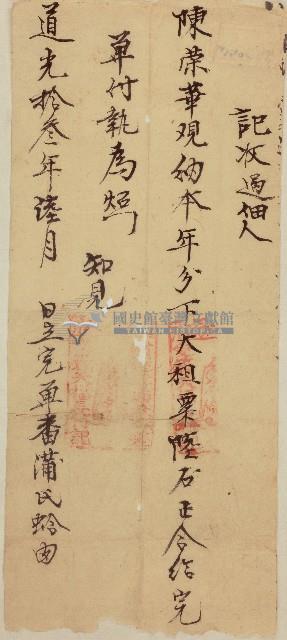 記收過佃人
陳榮華观納本年分下大租粟陸石正今給完
單付執為炤
知見
道光拾叁年陸月 日立完單番蒲氏蛤肉
國史館臺灣文獻館
TAIWAN HISTORICA